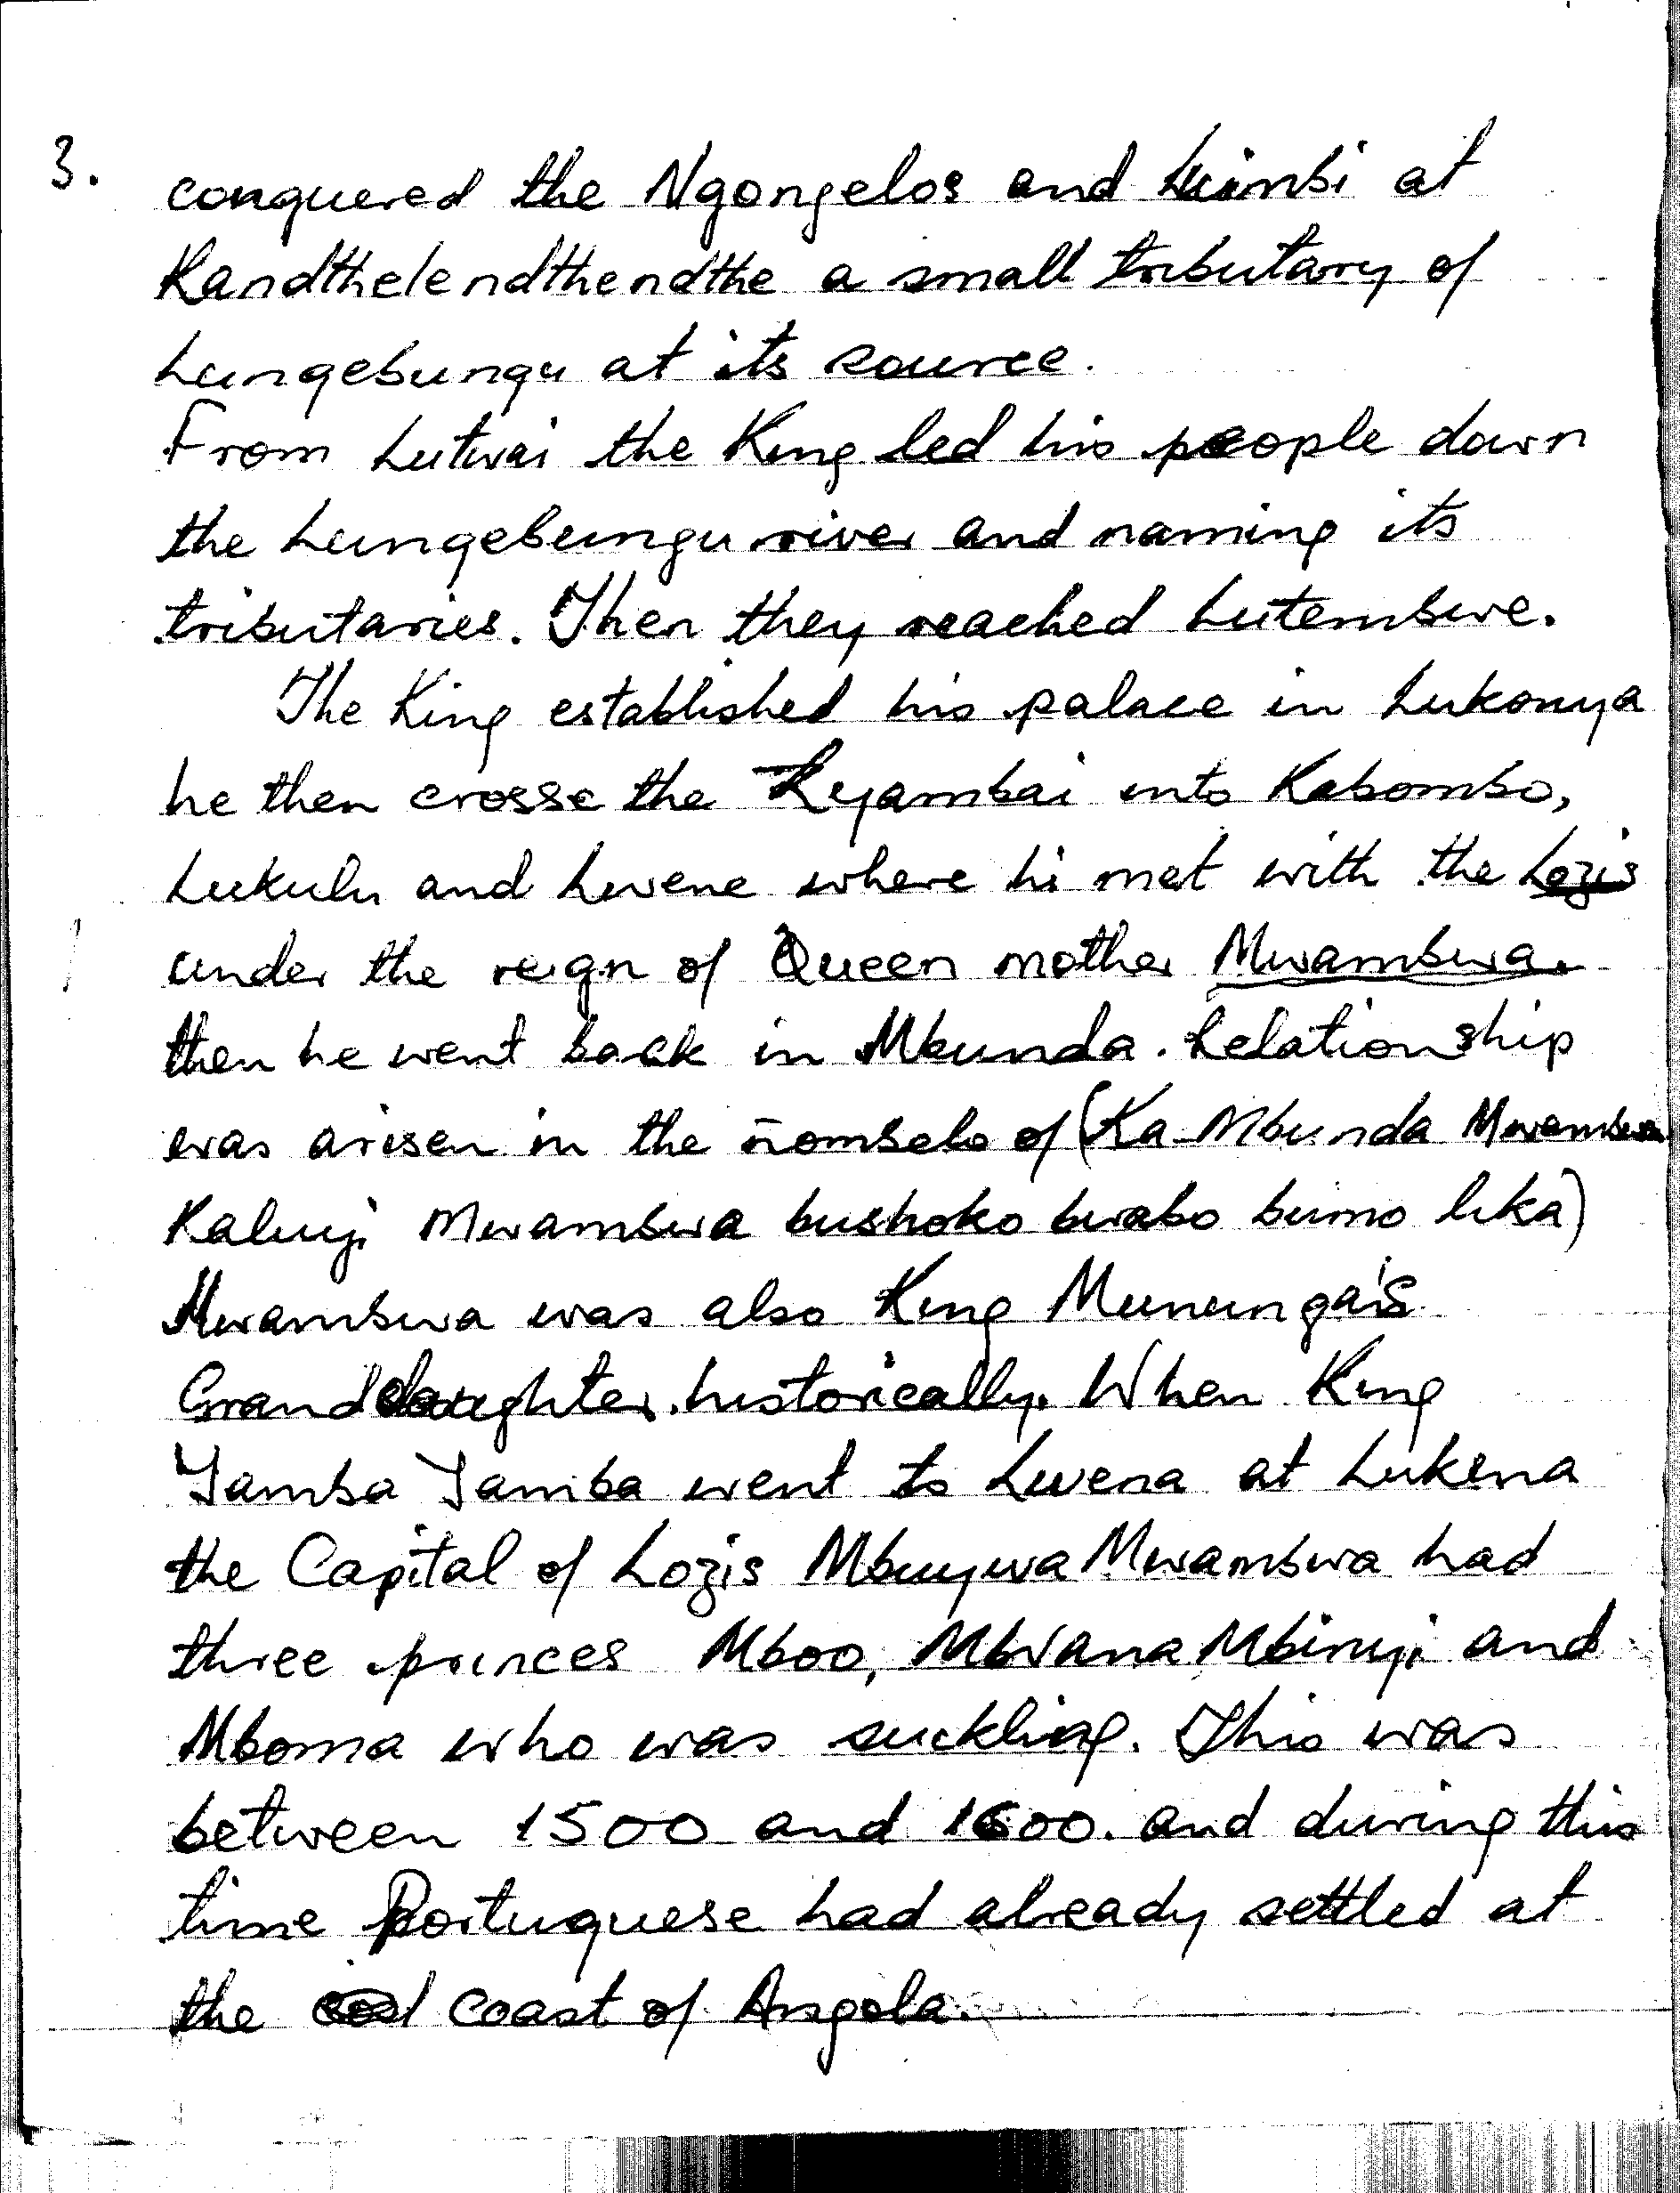 3. conquered the Ngongelos and Luimbi at
Kandthelendthendthe a small tributary of
Lungebungu at its source.
From Lutwai the King led his people down
the Lungebungu river and naming its
tributaries. Then they reached Lutembwe.
The King established his palace in Lukonya
he then crosse the Lyambai into Kabombo,
Lukulu and Lwene where hi met with the Lozis
under the reign of Queen mother Mwambwa.
then he went back in Mbunda. Relationship
was arisen in the nomselo of (Ka Mbunda Mwambwa
Kaluyi Mwambwa bushoko bwabo bumo lika)
Mwambwa was also King Munungai's
Granddaughter historically. When King
Yamba Yamba went to Lwena at Lukena
the Capital of Lozis Mbuywa Mwambwa had
three princes Mboo, Mbwana Mbinyi and
Mboma who was suckling. This was
between 1500 and 1600. and during this
time Portuguese had already settled at
the coast of Angola.